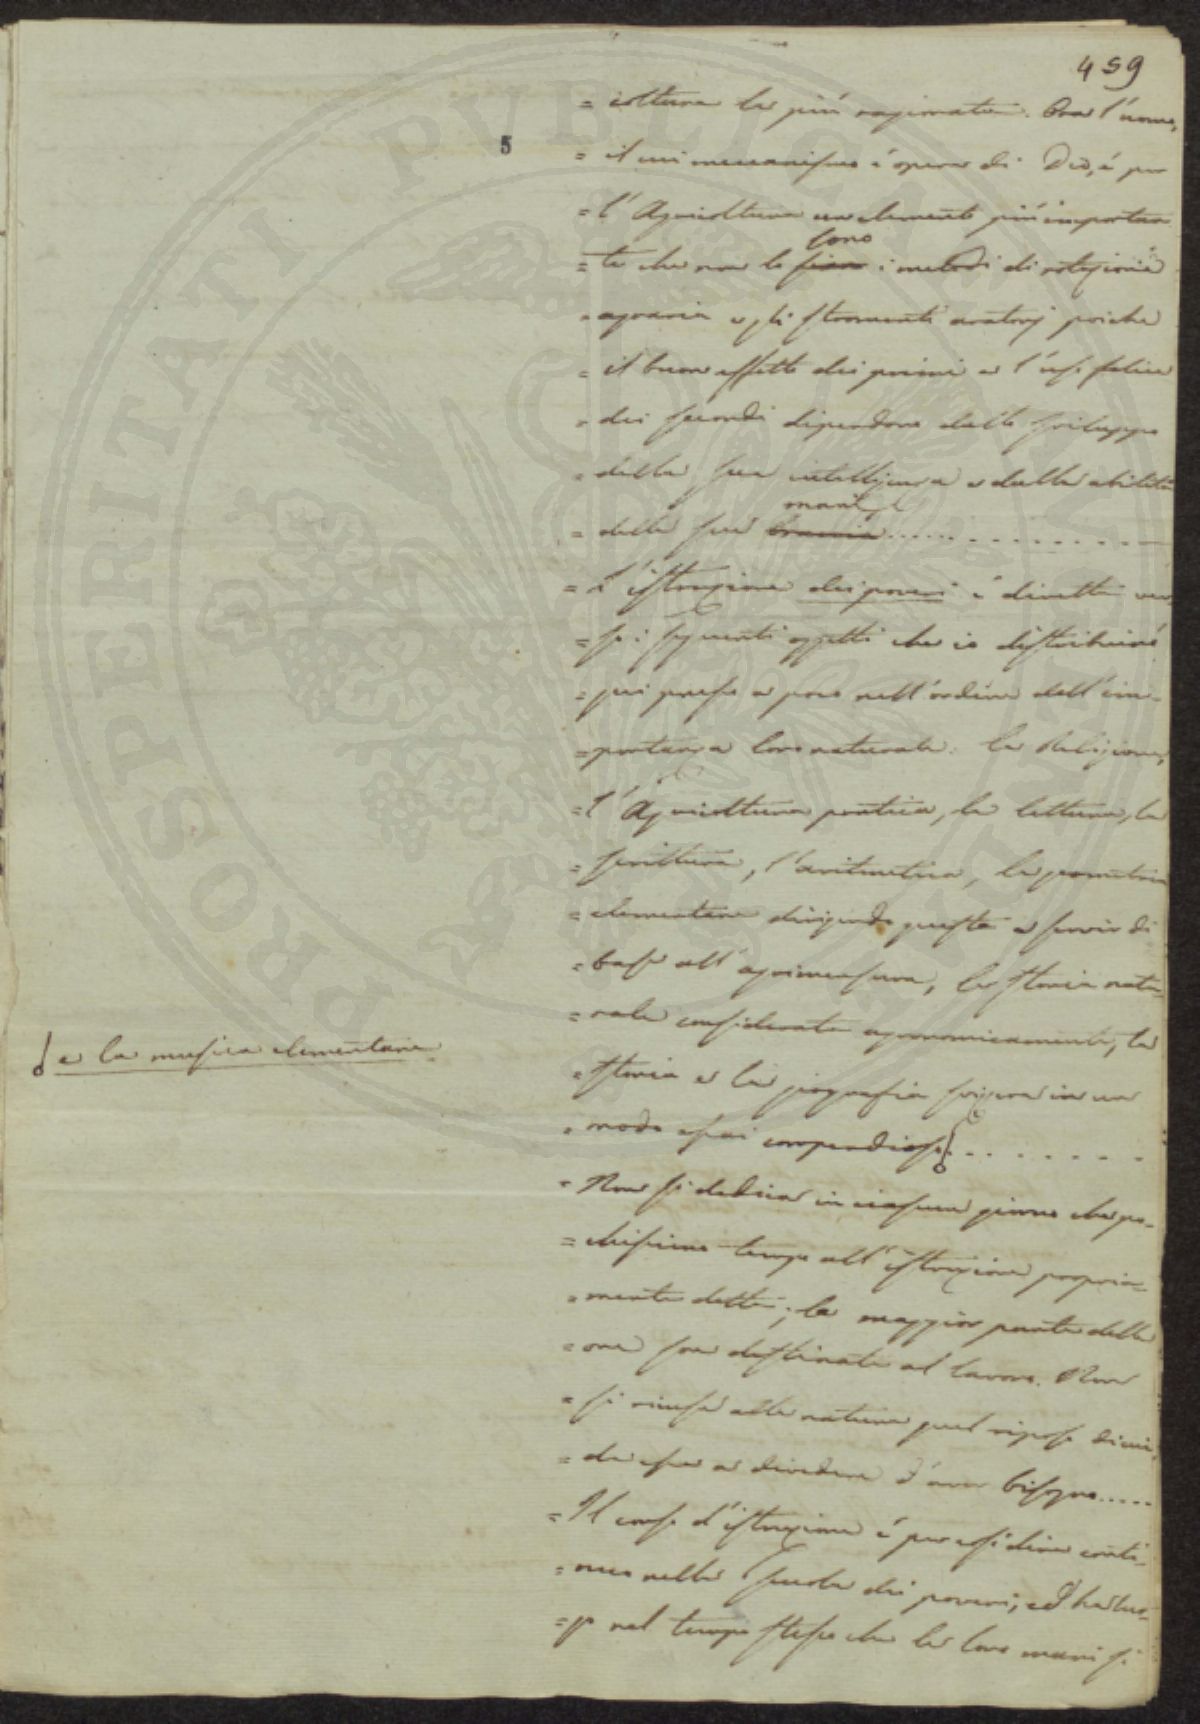 459
5
= coltura la più ragionata. Ora l'uomo,
= il cui meccanismo è opera di Dio, è per
= l'Agricoltura un elemento più importan
sono
= te che non lo siano i metodi di rotazione
= agraria e gli stromenti aratorj poiché
= il buon effetto dei primi e l'uso felice
= dei secondi dipendono dallo sviluppo
= della sua intelligenza e dalla abilità
mani
= delle sue braccia ..............
= L'istruzione dei poveri è diretta ver
= so i seguenti oggetti che io distribuirò
= qui presso a poco nell'ordine dell'im-
= portanza loro naturale: la Religione,
= l'Agricoltura pratica, la lettura, la
= scrittura, l'aritmetica, la geometria
= elementare dirigendo questa a servir di
= base all'agrimensura, la storia natu-
= rale considerata agronomicamente, la
= storia e la geografia svizzera in un
= modo assai compendioso ........
e la musica elementare
= Non si dedica in ciascun giorno che po-
= chissimo tempo all'istruzione propria-
= mente detta; la maggior parte delle
= ore son destinate al lavoro. Non
= si ricusa alla natura quel riposo di cui
= da essa a divedere d'aver bisogno.....
= Il corso d'istruzione è per così dire conti-
= nuo nella Scuola dei poveri, ed ha luo-
= go nel tempo stesso che le loro mani si
PROSPERITATI PVBLICAE